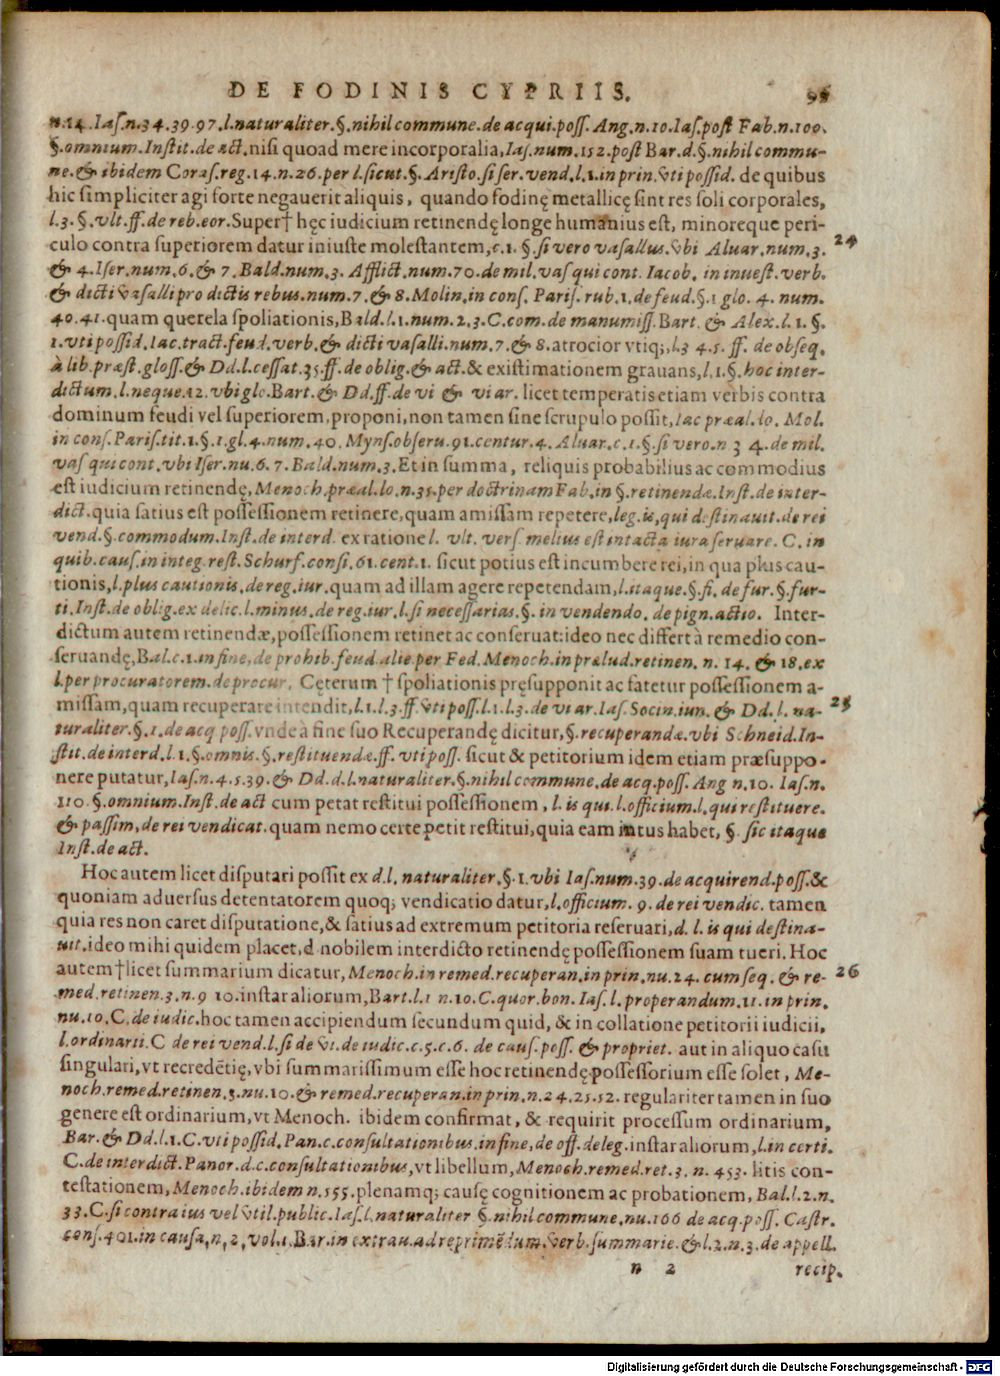 DE FODINIS CYPRIIS. 95
n.14. Ias.n.34.39.97.l.naturaliter.§.nihil commune.de acqui.poss. Ang.n.10.Ias.post Fab.n.100.
§.omnium.Instit.de act.nisi quoad mere incorporalia,Ias.num.152.post Bar.d.§.nihil commu-
ne.& ibidem Coras.reg.14.n.26.per l.sicut.§. Aristo.si ser.vend.l.1.in prin.vti possid. de quibus
hic simpliciter agi forte negauerit aliquis, quando fodinę metallicę sint res soli corporales,
l.3.§.vlt.ff.de reb.eor.Super† hęc iudicium retinendę longe humanius est, minoreque peri-
culo contra superiorem datur iniuste molestantem,c.1.§.si vero vasallus.vbi Aluar.num.3. 24
& 4.Iser.num.6.& 7.Bald.num.3. Afflict.num.70.de mil.vas qui cont. Iacob. in inuest.verb.
& dicti vasalli pro dictis rebus.num.7.& 8.Molin.in cons. Paris.rub.1.de feud.§.1 glo. 4. num.
40.41.quam querela spoliationis,Bald.l.1.num.2.3.C.com.de manumiss.Bart. & Alex.l.1.§.
1.vti possid.Iac.tract.feud.verb.& dicti vasalli.num.7.& 8.atrocior vtiq;,l.3 4.5. ff. de obseq.
à lib.præst.gloss.& Dd.l.cessat.35.ff.de oblig.& act.& existimationem grauans,l.1.§.hoc inter-
dictum.l.neque.12.vbi glo.Bart.& Dd.ff.de vi & vi ar. licet temperatis etiam verbis contra
dominum feudi vel superiorem, proponi, non tamen sine scrupulo possit,Iac præal.lo. Mol.
in cons.Paris.tit.1.§.1.gl.4.num.40.Myns.obseru.91.centur.4.Aluar.c.1.§.si vero.n 3 4.de mil.
vas qui cont.vbi Iser.nu.6.7.Bald.num.3.Et in summa, reliquis probabilius ac commodius
est iudicium retinendę,Menoch.præal.lo.n.35.per doctrinam Fab.in §.retinendæ.Inst.de inter-
dict.quia satius est possessionem retinere,quam amissam repetere,leg.is,qui destinauit.de rei
vend.§.commodum.Inst.de interd. ex ratione l. vlt. vers. melius est intacta iura seruare. C. in
quib.caus.in integ.rest.Schurf.consi.61.cent.1. sicut potius est incumbere rei, in qua plus cau-
tionis,l.plus cautionis.de reg.iur.quam ad illam agere repetendam,l.itaque.§.fi.de fur.§.fur-
ti.Inst.de oblig.ex delic.l.minus.de reg.iur.l.si necessarias.§.in vendendo.de pign.actio. Inter-
dictum autem retinendæ,possessionem retinet ac conseruat:ideo nec differt à remedio con-
seruandę,Bal.c.1.in fine,de prohib.feud.alie per Fed. Menoch.in prælud.retinen. n. 14. & 18.ex
l.per procuratorem.de procur. Cęterum † spoliationis pręsupponit ac fatetur possessionem a-
missam,quam recuperare intendit,l.1.l.3.ff.vti poss.l.1.l.3.de vi ar.Ias.Socin.iun.& Dd.l. na- 25
turaliter.§.1.de acq poss.vnde à fine suo Recuperandę dicitur,§.recuperandæ.vbi Schneid.In-
stit.de interd.l.1.§.omnis.§.restituendæ.ff.vti poss. sicut & petitorium idem etiam præsuppo-
nere putatur,Ias.n.4.5.39.& Dd.d.l.naturaliter.§.nihil commune.de acq.poss.Ang n.10. Ias.n.
110.§.omnium.Inst.de act cum petat restitui possessionem, l.is qui.l.officium.l.qui restituere.
& passim,de rei vendicat.quam nemo certe petit restitui,quia eam intus habet, §. sic itaque
Inst.de act.
Hoc autem licet disputari possit ex d.l. naturaliter.§.1.vbi Ias.num.39.de acquirend.poss.&
quoniam aduersus detentatorem quoq; vendicatio datur,l.officium. 9. de rei vendic. tamen
quia res non caret disputatione,& satius ad extremum petitoria reseruari,d. l. is qui destina-
uit.ideo mihi quidem placet,d nobilem interdicto retinendę possessionem suam tueri. Hoc
autem†licet summarium dicatur, Menoch.in remed.recuperan.in prin.nu.24. cum seq. & re- 26
med.retinen.3.n.9 10.instar aliorum,Bart.l.1 n.10.C.quor.bon. Ias.l.properandum.11.in prin.
nu.10.C.de iudic.hoc tamen accipiendum secundum quid, & in collatione petitorii iudicii,
l.ordinarii.C de rei vend.l.si de vi.de iudic.c.5.c.6. de caus.poss. & propriet. aut in aliquo casu
singulari,vt recredētię,vbi summarissimum esse hoc retinendę possessorium esse solet, Me-
noch.remed.retinen.3.nu.10.& remed.recuperan.in prin.n.24.25.52. regulariter tamen in suo
genere est ordinarium,vt Menoch. ibidem confirmat, & requirit processum ordinarium,
Bar.& Dd.l.1.C.vti possid.Pan.c.consultationibus.in fine,de off.deleg.instar aliorum,l.in certi.
C.de interdict.Panor.d.c.consultationibus,vt libellum,Menoch.remed.ret.3. n. 453. litis con-
testationem,Menoch.ibidem n.555.plenamq; causę cognitionem ac probationem, Bal.l.2.n.
33.C.si contra ius vel vtil.public.Ias.l.naturaliter §.nihil commune.nu.166 de acq.poss. Castr.
cons.401.in causa,n,2,vol.1.Bar.in extrau.ad reprimēdum.verb.summarie.& l.2.n.3.de appell.
n 2 recip.
Digitalisierung gefördert durch die Deutsche Forschungsgemeinschaft - DFG